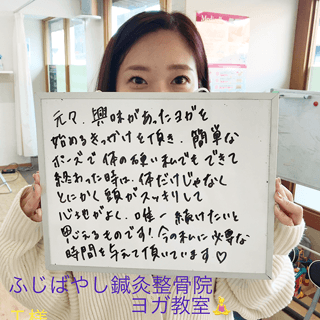 元々、興味があったヨガを
始めるきっかけを頂き、簡単な
ポーズで体の硬い私でもできて
終わった時は、体だけじゃなく
とにかく頭がスッキリして
心地がよく、唯一続けたいと
思えるものです！今の私に必要な
時間を与えて頂いています♡
ふじばやし鍼灸整骨院
ヨガ教室🧘
T様